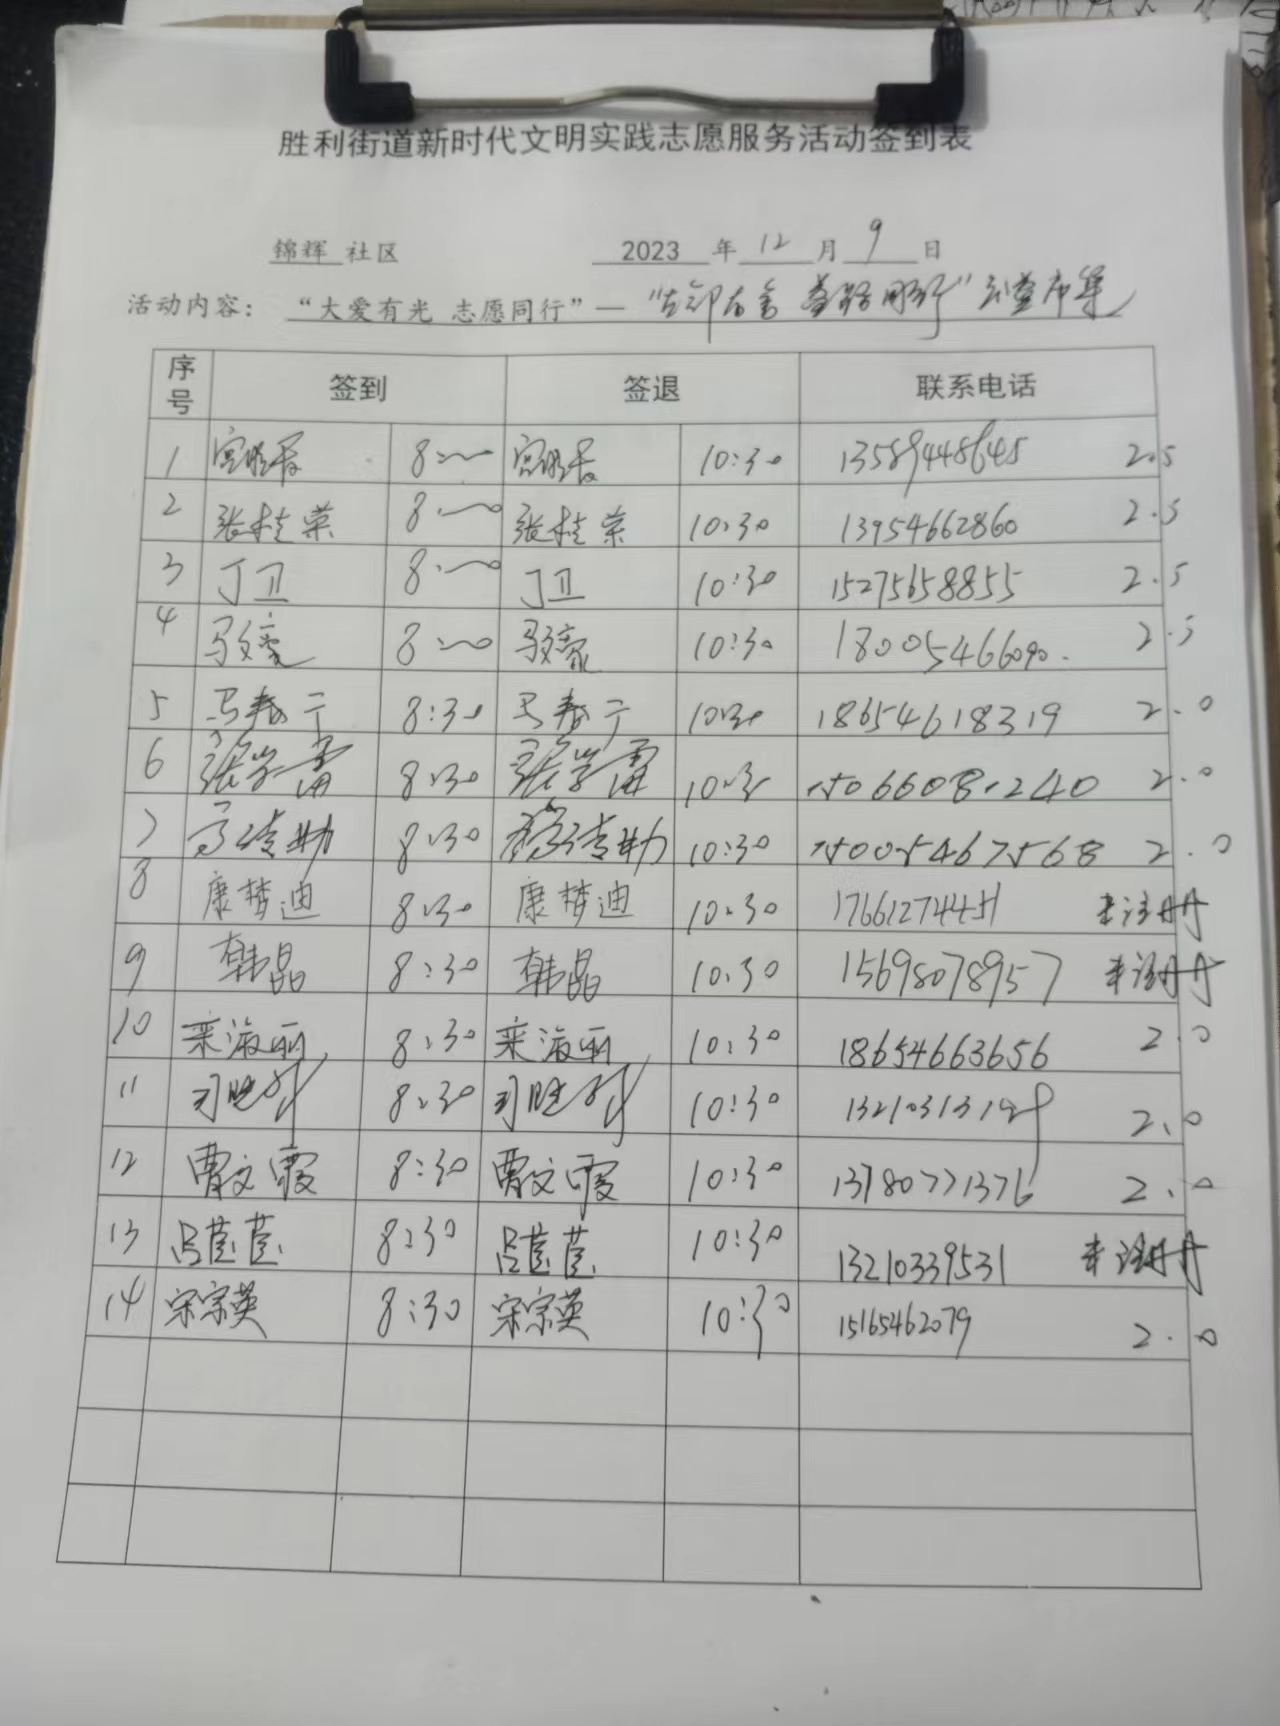 胜利街道新时代文明实践志愿服务活动签到表
锦辉 社区 2023 年 12 月 9 日
活动内容：“大爱有光 志愿同行”—“左邻右舍 益路同行”公益市集
序号 签到 签退 联系电话
1 8:00 10:30 13589448645 2.5
2 张桂荣 8:00 张桂荣 10:30 13954662860 2.5
3 丁卫 8:00 丁卫 10:30 15275658855 2.5
4 8:00 10:30 18005466090. 2.5
5 马春宁 8:30 马春宁 10:30 18654618319 2.0
6 张学雷 8:30 张学雷 10:30 2.0
7 8:30 10:30 15005467568 2.0
8 康梦迪 8:30 康梦迪 10:30 未注册
9 韩晶 8:30 韩晶 10:30 15698078957 未注册
10 栾海丽 8:30 栾海丽 10:30 18654663656 2.0
11 8:30 10:30 2.0
12 曹文霞 8:30 曹文霞 10:30 13780771376 2.0
13 8:30 10:30 13210339531 未注册
14 宋宗英 8:30 宋宗英 10:30 15165462079 2.0